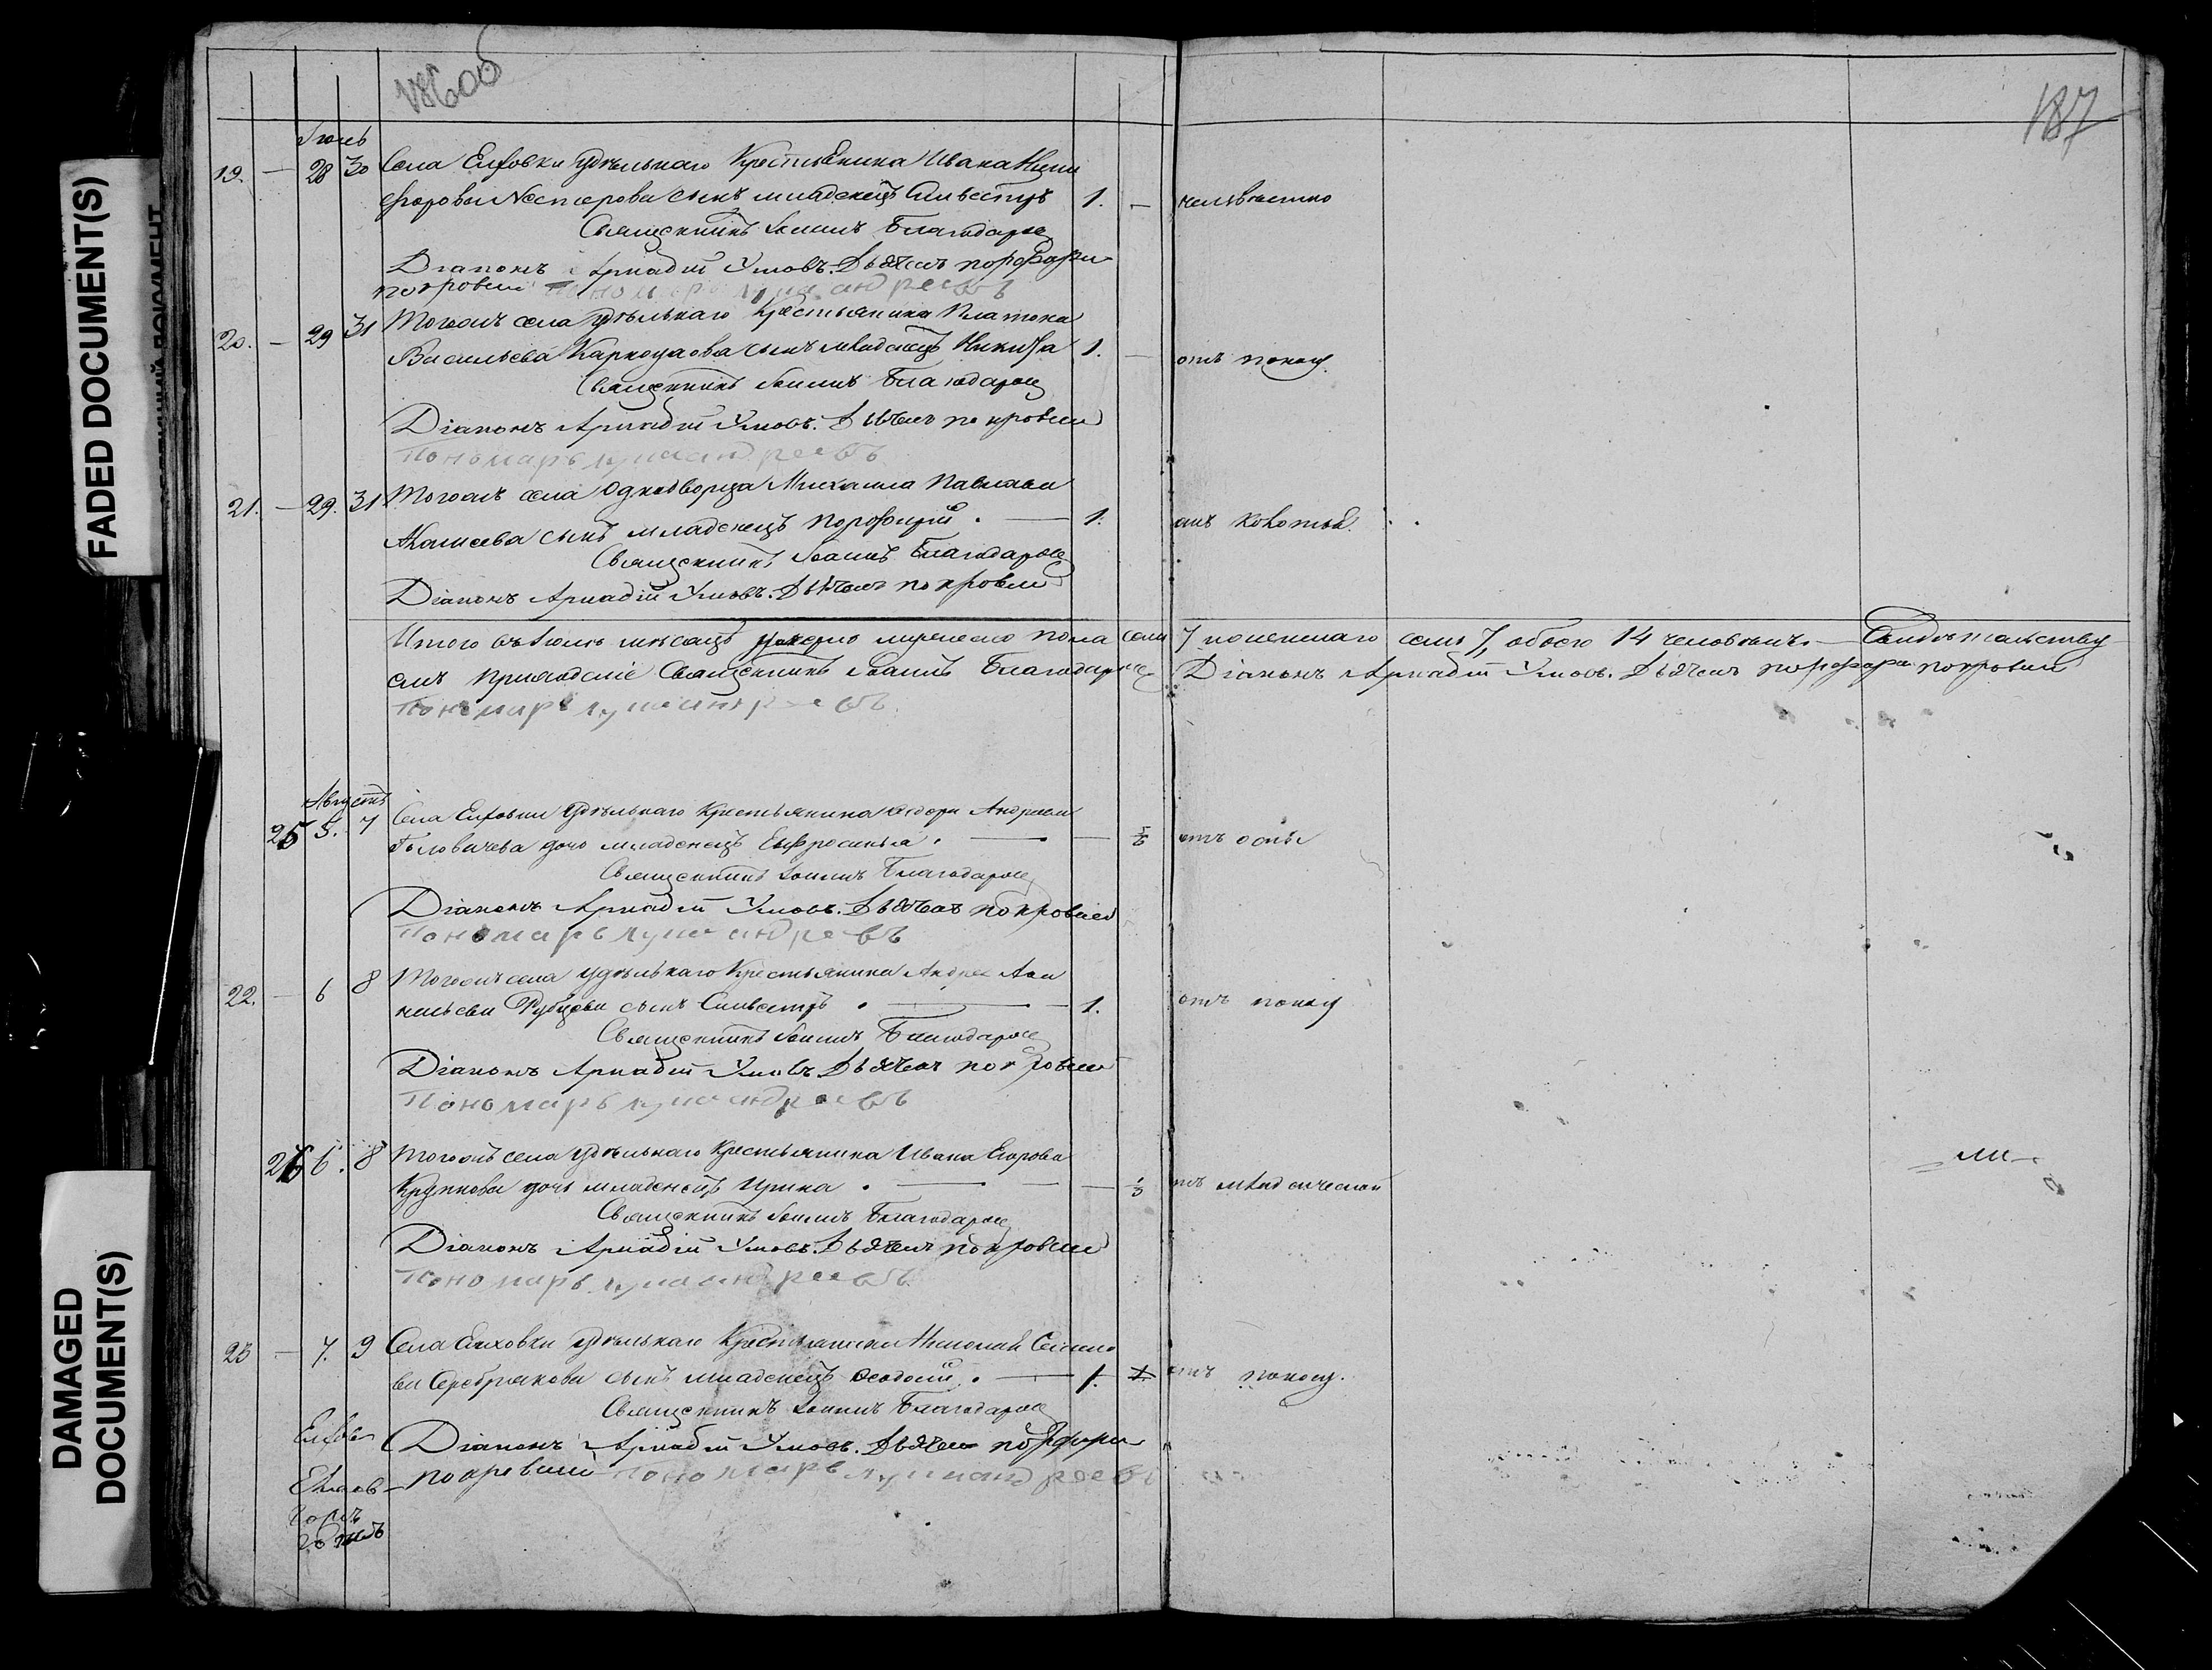 FADED DOCUMENT(S)
DAMAGED DOCUMENT(S)
186об
187
Іюль
19. — 28 30 Села Елховки удѣльнаго Крестьянина Ивана Ники
форова Нестерова сынъ младенецъ Сильвестръ 1. —
Священникъ Іоаннъ Благодаров
Діаконъ Аркадій Умовъ. Дьячекъ порфири
покровский Пономарь лука андреевъ
20. — 29 31 Тогожъ села удѣльнаго Крестьянина Платона
Васильева сынъ младенецъ Никита 1. — отъ поносу
Священникъ Іоаннъ Благодаров
Діаконъ Аркадій Умовъ. Дьячекъ покровский
Пономарь лука андреевъ
21. — 29. 31 Тогожъ села Однодворца Михаила Павлова
сынъ младенецъ Порфирій. — 1.
Священникъ Іоаннъ Благодаров
Діаконъ Аркадій Умовъ. Дьячекъ покровский
Итого въ Іюлѣ мѣсяцѣ умерло мужеска пола семь 7 женскаго семь 7, обоего 14 человѣкъ. — Свидѣтельству
емъ Священникъ Іоаннъ Благодаров Діаконъ Аркадій Умовъ. Дьячекъ порфири покровский
Пономарь лука андреевъ
Августъ
25 5. 7 Села Елховки удѣльнаго Крестьянина Федора Андреева
Головачева дочь младенецъ Евфросинья. — отъ оспы
Священникъ Іоаннъ Благодаров
Діаконъ Аркадій Умовъ. Дьячекъ покровский
Пономарь лука андреевъ
22. — 6 8 Тогожъ села удѣльнаго Крестьянина Андрея
сынъ Сильвестръ. — 1. отъ поносу
Священникъ Іоаннъ Благодаров
Діаконъ Аркадій Умовъ Дьячекъ покровский
Пономарь лука андреевъ
26 6. 8 Тогожъ села удѣльнаго Крестьянина Ивана Егорова
Крупнова дочь младенецъ Ирина. — отъ младенческой
Священникъ Іоаннъ Благодаров
Діаконъ Аркадій Умовъ. Дьячекъ покровский
Пономарь лука андреевъ
23 — 7. 9 Села Елховки удѣльнаго Крестьянина Николая Семено
ва Серебрякова сынъ младенецъ Феодосій. — 1. отъ поносу.
Священникъ Іоаннъ Благодаров
Діаконъ Аркадій Умовъ. Дьячекъ порфири
покровский Пономарь лука андреевъ
Елхов